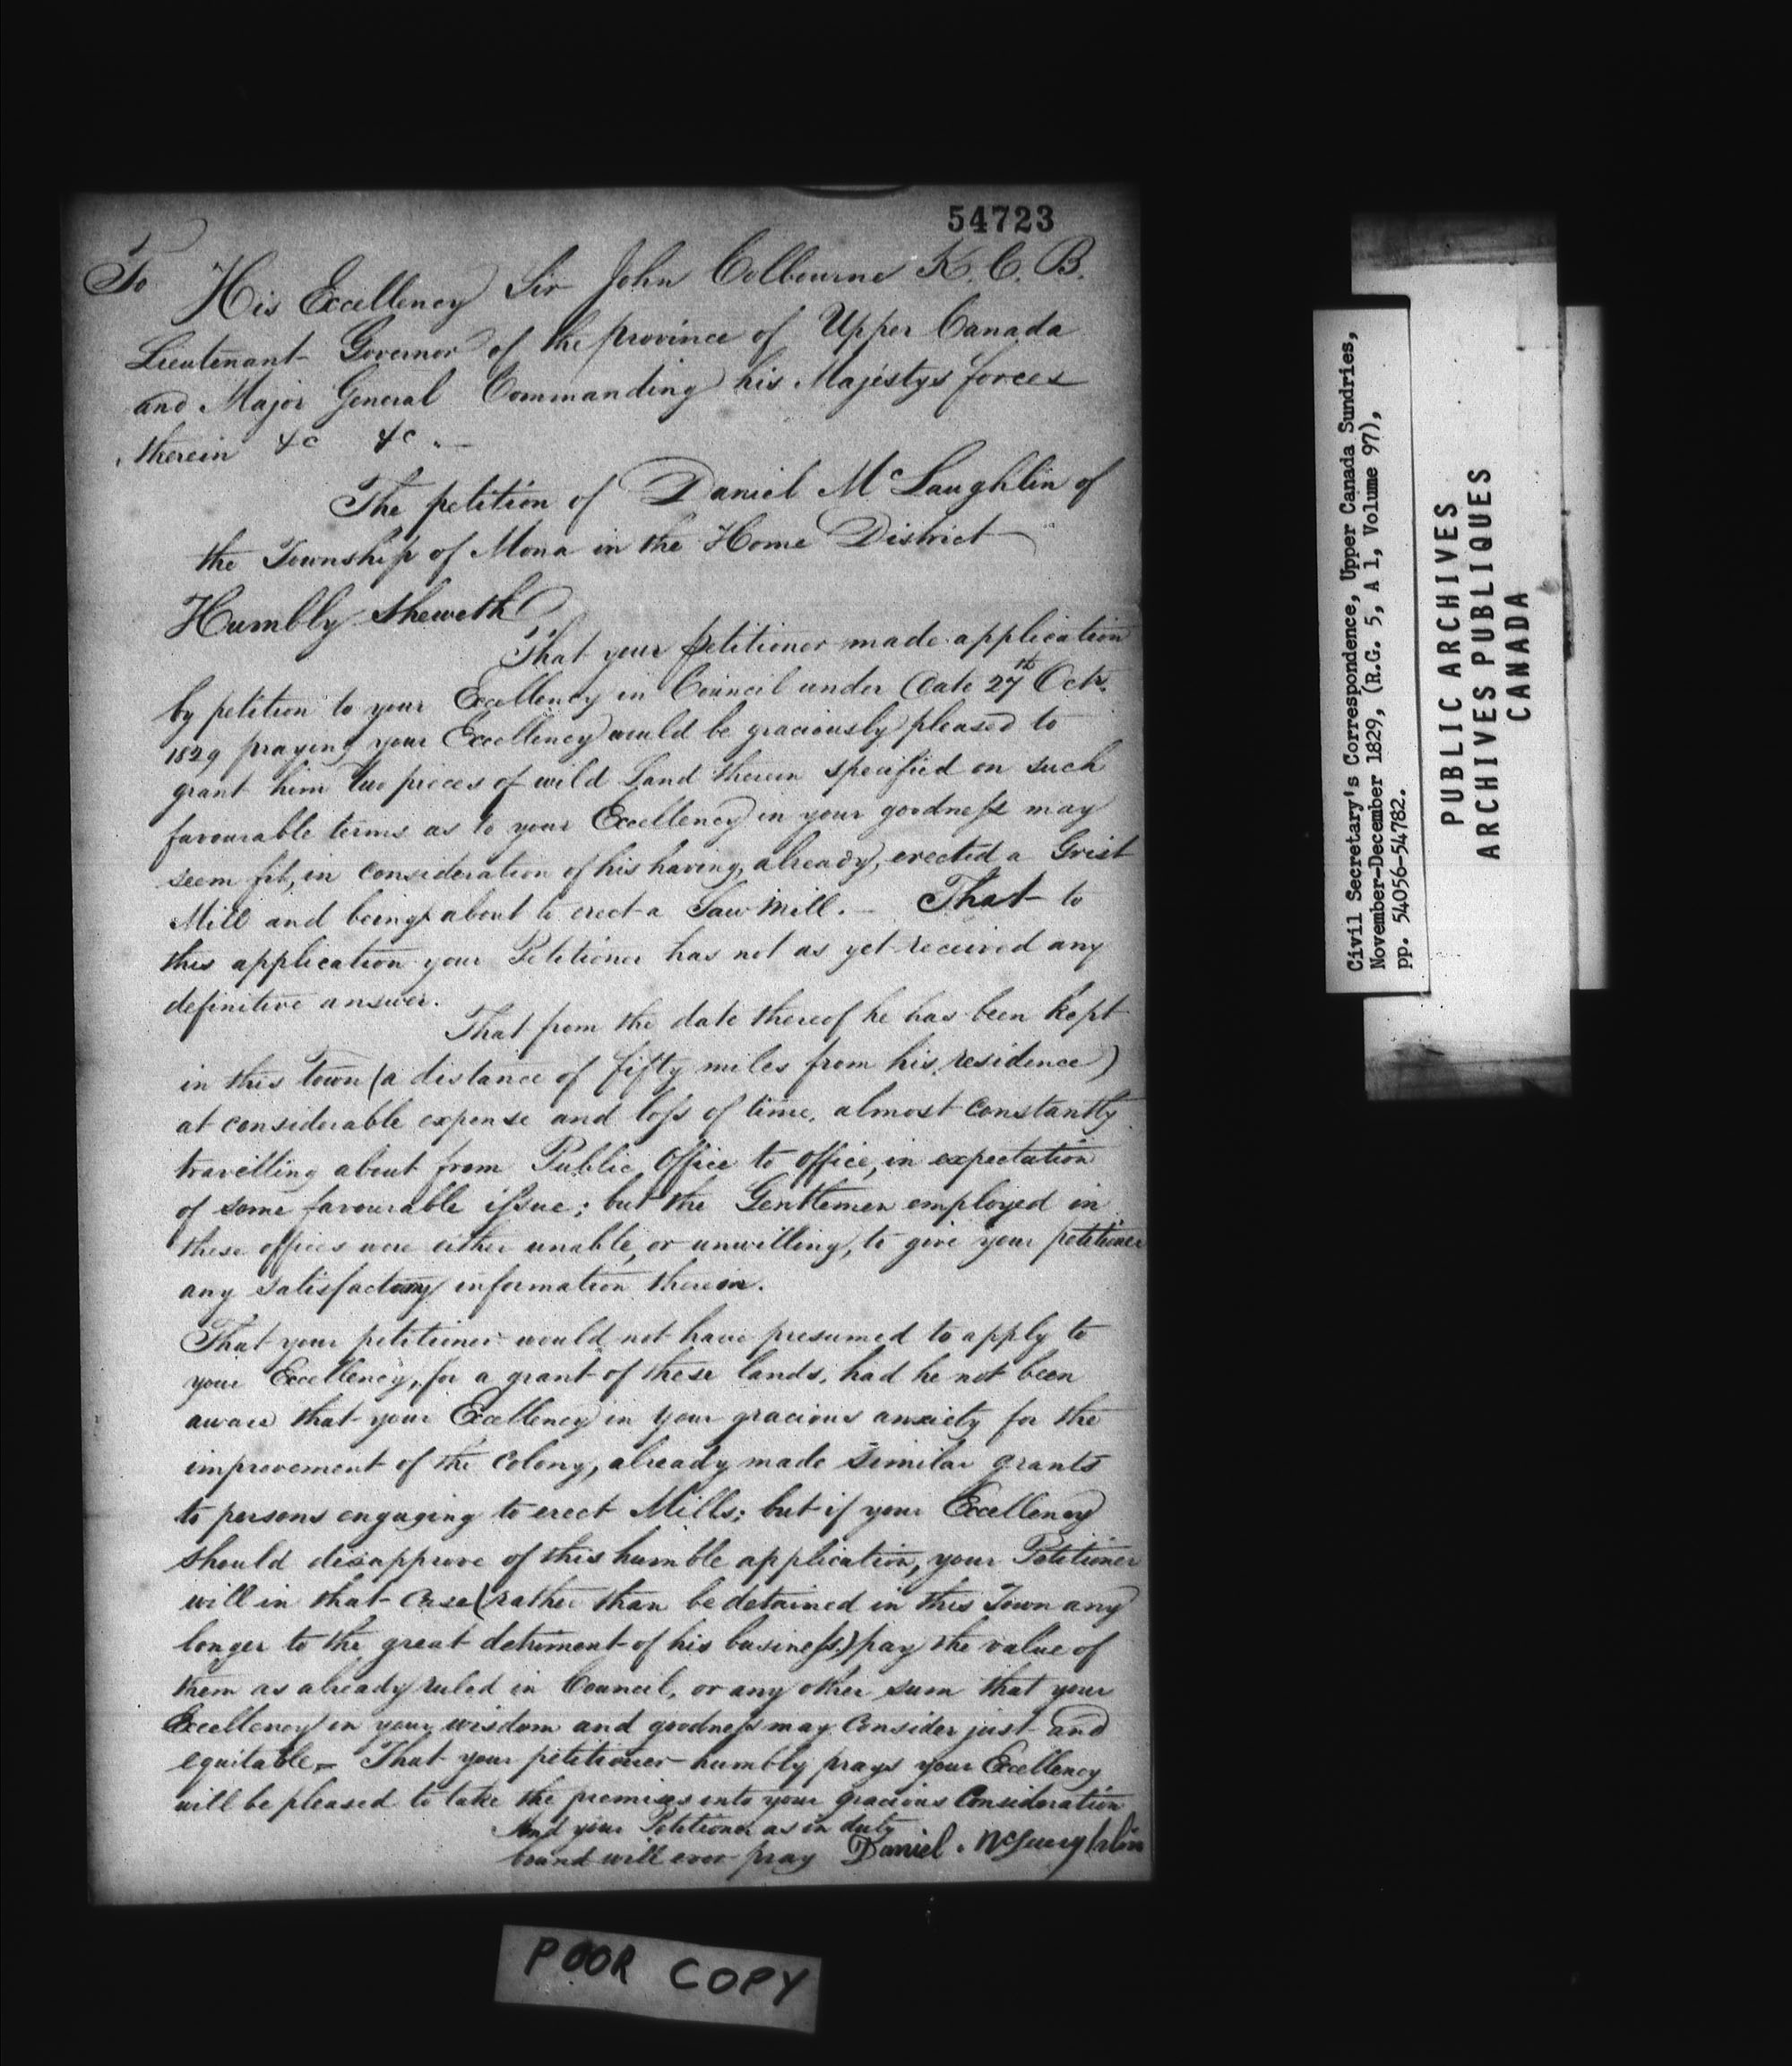 54723
To His Excellency Sir John Colbourne K. C. B.
Lieutenant Governor of the province of Upper Canada
and Major General Commanding his Majestys forces
therein &c &c. —
The petition of Daniel McLaughlin of
the Township of Mona in the Home District
Humbly Sheweth
That your petitioner made application
by petition to your Excellency in Council under date 27th Octr.
1829 praying your Excellency would be graciously pleased to
grant him two pieces of wild Land therein specified on such
favourable terms as to your Excellency in your goodness may
seem fit, in consideration of his having, already, erected a Grist
Mill and being about to erect a Saw Mill. — That to
this application your Petitioner has not as yet received any
definitive answer.
That from the date thereof he has been kept
in this town (a distance of fifty miles from his residence)
at considerable expense and loss of time, almost constantly
travelling about from Public Office to office, in expectation
of some favourable issue; but the Gentlemen employed in
these offices were either unable, or unwilling, to give your petitioner
any satisfactory information therein.
That your petitioner would not have presumed to apply to
your Excellency, for a grant of these lands, had he not been
aware that your Excellency in your gracious anxiety for the
improvement of the Colony, already made similar grants
to persons engaging to erect Mills; but if your Excellency
should disapprove of this humble application, your Petitioner
will in that case (rather than be detained in this Town any
longer to the great detriment of his business) pay the value of
them as already ruled in Council, or any other sum that your
Excellency in your wisdom and goodness may consider just and
equitable — That your petitioner humbly prays your Excellency
will be pleased to take the premises into your gracious Consideration
And your Petitioner as in duty
bound will ever pray Daniel McLaughlin
POOR COPY
Civil Secretary's Correspondence, Upper Canada Sundries,
November-December 1829, (R.G. 5, A 1, Volume 97),
pp. 54056-54782.
PUBLIC ARCHIVES
ARCHIVES PUBLIQUES
CANADA